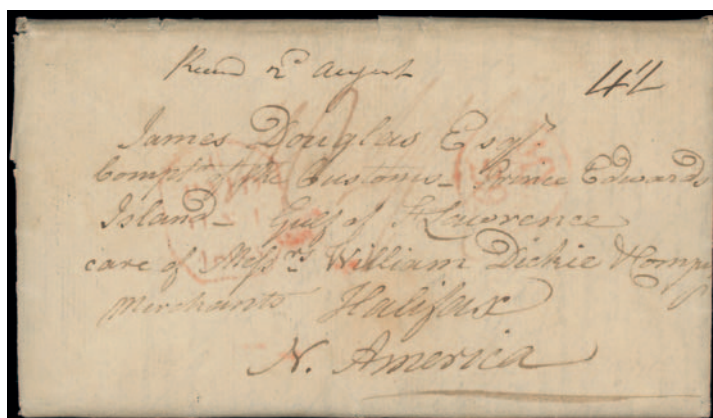 Recd 2d August
4/2
James Douglas Esqr
Comptr of the Customs - Prince Edwards
Island - Gulf of St Lawrence
care of Messrs William Dickie & Compy
Merchants Halifax
N. America